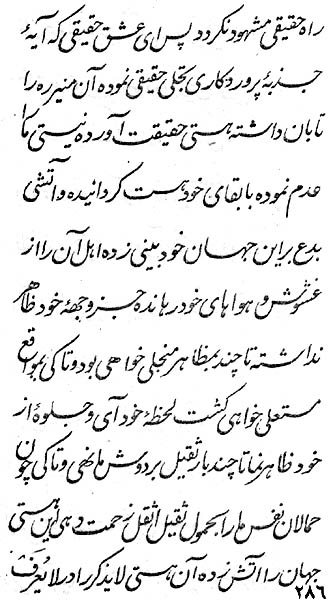 راه حقیقی مشهود نگردد پس ای عشق حقیقی که آیهٔ
جذبهٔ پروردکاری بتجلی حقیقی نموده آن منیره را
تابان داشته هستی حقیقت آورده نیستی ما را
عدم نموده با بقای خود هست کردانیده و آتشی
بدع بر این جهان خود بینی زده اهل آن را از
غشوش و هواهای خود رهانده جز وجههٔ خود ظاهر
نداشته تا چند بمظاهر منجلی خواهی بود و تا کی بمواقع
مستعلی خواهی کشت لحظهٔ خود آی و جلوهٔ از
خود ظاهر نما تا چند بار ثقیل بر دوش ما نهی و تا کی چون
حمالان نفس ما را بحمول ثقیل اثقل زحمت دهی این هستی
جهان را آتش زده آن هستی لایذکر را در لایعرف
۲۸۶